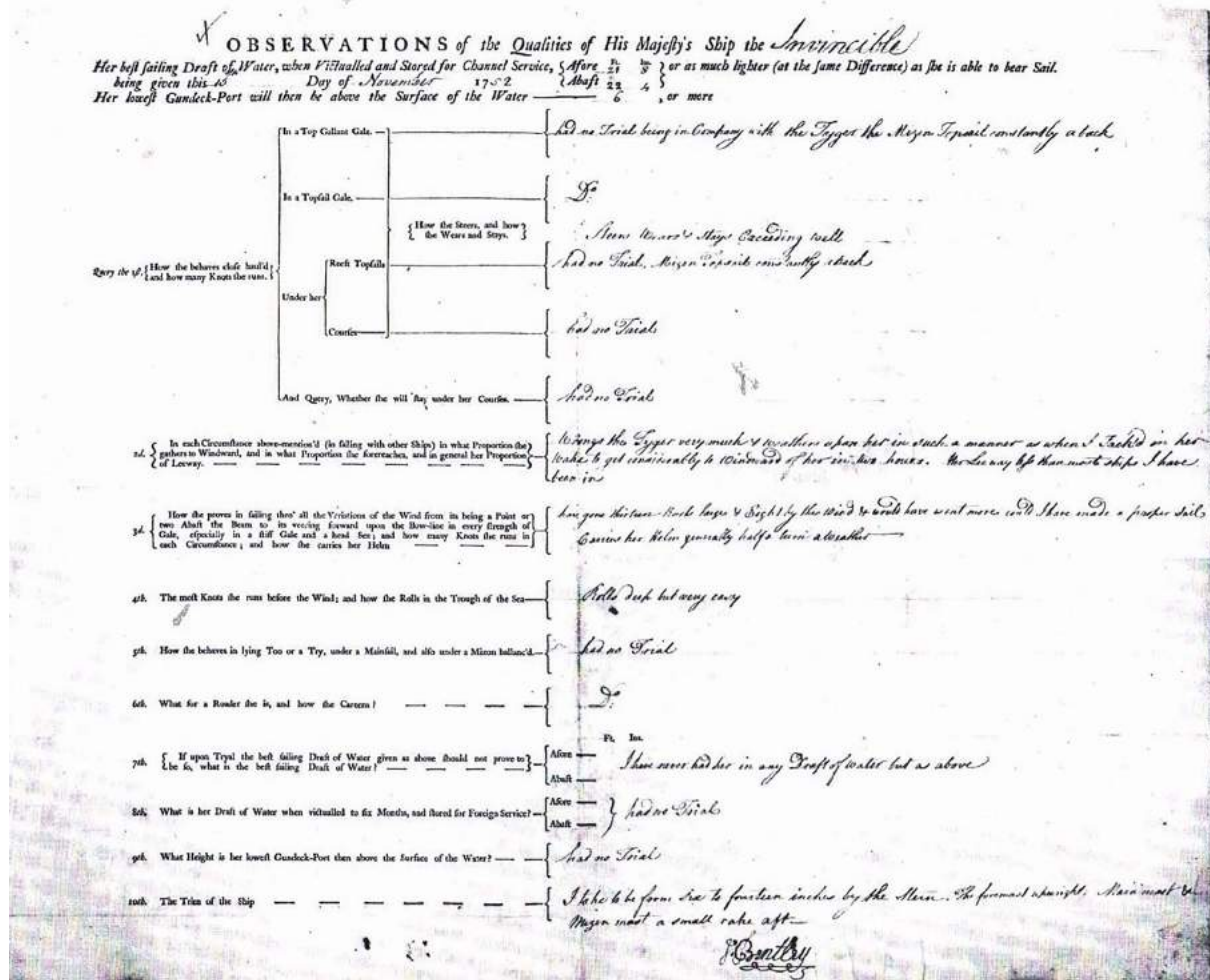 OBSERVATIONS of the Qualities of His Majesty's Ship the Invincible
Her best sailing Draft of Water, when Victualled and Stored for Channel Service, { Afore 21 5 } or as much lighter (at the same Difference) as she is able to bear Sail.
being given this 15 Day of November 1752 { Abaft 22 4 }
Her lowest Gundeck-Port will then be above the Surface of the Water 6 , or more
In a Top Gallant Gale. had no Trial being in Company with the Tyger the Mizen Topsail constantly a back
In a Topsail Gale. Do:
{ How she Steers, and how she Wears and Stays. } Steers Wears & Stays Exceeding well
Query the 1st. { How she behaves close haul'd and how many Knots she runs. }
Under her
Reeft Topsails had no Trial. Mizen Topsail constantly aback
Courses had no Trial
And Query, Whether she will stay under her Courses. had no Trial
2d. { In each Circumstance above-mention'd (in sailing with other Ships) in what Proportion she
gathers to Windward, and in what Proportion she forereaches, and in general her Proportion
of Leeway.
Wrongs the Tyger very much & weathers upon her in such a manner as when I Tack'd in her
Wake to get considerably to Windward of her in two hours. Her Leeway less than most ships I have
been in
3d. { How she proves in sailing thro' all the Variations of the Wind from its being a Point or
two Abaft the Beam to its veering forward upon the Bow-line in every strength of
Gale, especially in a stiff Gale and a head Sea; and how many Knots she runs in
each Circumstance; and how she carries her Helm
have gone thirteen Knots large & Eight by the Wind & would have went more could I have made a proper Sail
Carries her Helm generally half a turn a weather
4th. The most Knots she runs before the Wind; and how she Rolls in the Trough of the Sea Rolls deep but very easy
5th. How she behaves in lying Too or a Try, under a Mainsail, and also under a Mizon ballanc'd. had no Trial
6th. What for a Roader she is, and how she Careens? Do:
Ft. Ins.
7th. { If upon Tryal the best sailing Draft of Water given as above should not prove to
be so, what is the best sailing Draft of Water? } Afore Abaft I have never had her in any Draft of water but as above
8th. What is her Draft of Water when victualled to six Months, and stored for Foreign Service? Afore Abaft had no Trial
9th. What Height is her lowest Gundeck-Port then above the Surface of the Water? had no Trial
10th. The Trim of the Ship I take to be form six to fourteen inches by the Stern. The foremast upright. Main mast &
Mizen mast a small rake aft
Bentley